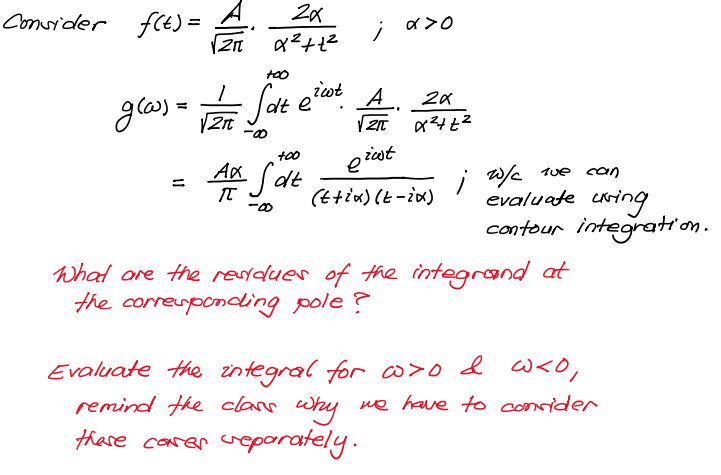 Consider f(t) = A/√2π · 2α/α²+t² ; α>0
g(ω) = 1/√2π ∫_{-∞}^{+∞} dt e^{iωt} · A/√2π · 2α/α²+t²
= Aα/π ∫_{-∞}^{+∞} dt e^{iωt}/(t+iα)(t-iα) ; w/c we can
evaluate using
contour integration.
What are the residues of the integrand at
the corresponding pole?
Evaluate the integral for ω>0 & ω<0,
remind the class why we have to consider
these cases separately.